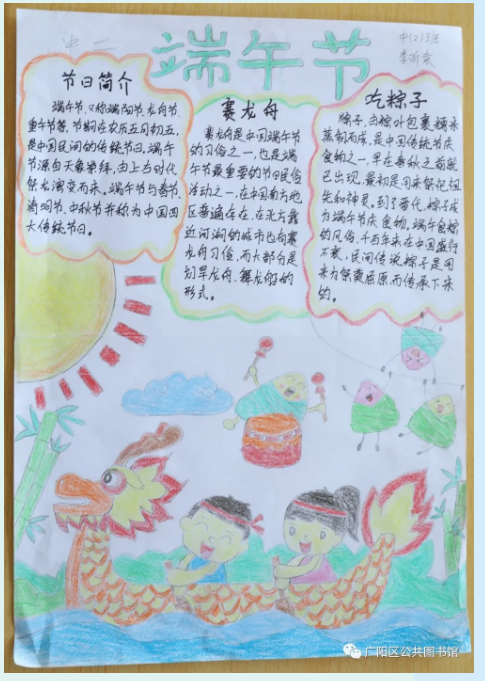 中二
中(2)班
端午节
节日简介
端午节，又称端阳节、龙舟节、
重午节等，节期在农历五月初五，
是中国民间的传统节日。端午
节源自天象崇拜，由上古时代
祭龙演变而来。端午节与春节、
清明节、中秋节并称为中国四
大传统节日。
赛龙舟
赛龙舟是中国端午节
的习俗之一，也是端
午节最重要的节日民俗
活动之一，在中国南方地
区普遍存在，在北方靠
近河湖的城市也有赛
龙舟习俗，而大部分是
划旱龙舟、舞龙船的
形式。
吃粽子
粽子，由粽叶包裹糯米
蒸制而成，是中国传统节庆
食物之一，早在春秋之前就
已出现，最初是用来祭祀祖
先和神灵。到了晋代，粽子成
为端午节庆食物。端午食粽
的风俗，千百年来在中国盛行
不衰，民间传说粽子是用
来为祭奠屈原而传承下来
的。
广阳区公共图书馆